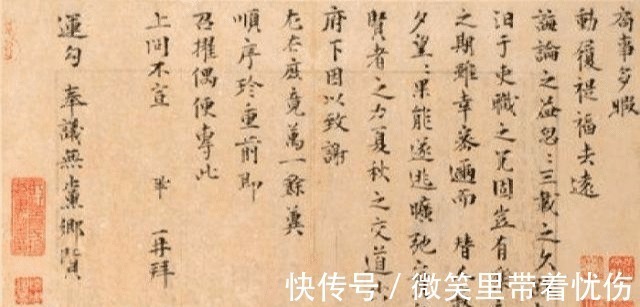 齋事多暇
動履禔福去遠
誨論之益忽〻三載之久
汩于吏職之冗固豈有
之期雖幸寡過而 替
夕望〻果能遂逃曠弛
賢者之力夏秋之交道
府下因以致謝
左右庶竟萬一餘冀
順序珍重前即
召擢偶便專此
上問不宣 再拜
運勾 奉議無黨鄉賢
快传号／微笑里带着忧伤